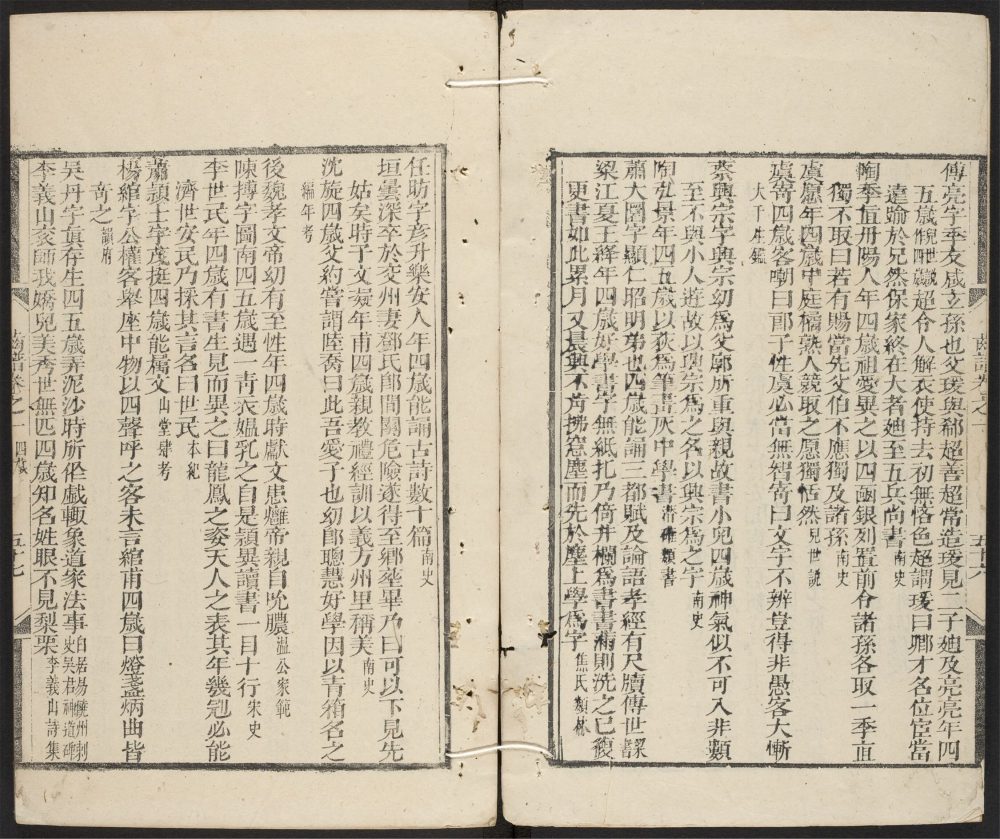 傅亮字季友咸玄孫也父瑗與郗超善超常造瑗見二子廸及亮亮年四
五歲超令人解衣使持去初無恡色超謂瑗曰卿才名位宦當
遠踰於兄然保家終在大者廸至五兵尚書南史
陶季直丹陽人年四歲祖愍異之以四函銀列置前令諸孫各取一季直
獨不取曰若有賜當先父伯不應獨及諸孫南史
虞愿年四歲中庭橘熟人競取之愿獨恬然兒世說
虞寄四歲客嘲曰郎子姓虞必當無智寄曰文字不辨豈得非愚客大慚
大千生鑑
蔡興宗字興宗幼為父廓所重與親故書小兒四歲神氣似不可入非類
至不與小人遊故以興宗為之名以興宗為之字南史
陶弘景年四五歲以荻為筆書灰中學書
蕭大圜字顯仁昭明弟也四歲能誦三都賦及論語孝經有尺牘傳世
梁江夏王鋒年四歲好學書字無紙札乃倚井欄為書書滿則洗之已復
更書如此累月又晨興不肯拂窓塵而先於塵上學為字焦氏類林
齒譜卷之一
五十六
任昉字彥升樂安人年四歲能誦古詩數十篇南史
垣曇深卒於交州妻鄧氏郎間關危險遂得至鄉葬畢乃曰可以下見先
姑矣時子文凝年甫四歲親教禮經訓以義方州里稱美南史
沈旋四歲父約嘗謂陸喬曰此吾愛子也幼郎聰慧好學因以青箱名之
編年考
後魏孝文帝幼有至性年四歲時獻文患癰帝親自吮膿溫公家範
陳摶字圖南四五歲遇一青衣媼乳之自是穎異讀書一目十行宋史
李世民年四歲有書生見而異之曰龍鳳之姿天人之表其年幾冠必能
濟世安民乃採其言名曰世民本紀
蕭穎士字茂挺四歲能屬文山堂肆考
楊綰字公權客舉座中物以四聲呼之客未言綰甫四歲曰燈盞炳曲皆
奇之韻府
吳丹字真存生四五歲弄泥沙時所作戲輒象道家法事白居易饒州刺史吳君神道碑
李義山袞師我嬌兒美秀世無匹四歲知名姓眼不見梨栗李義山詩集
齒譜卷之一 四歲
五十七